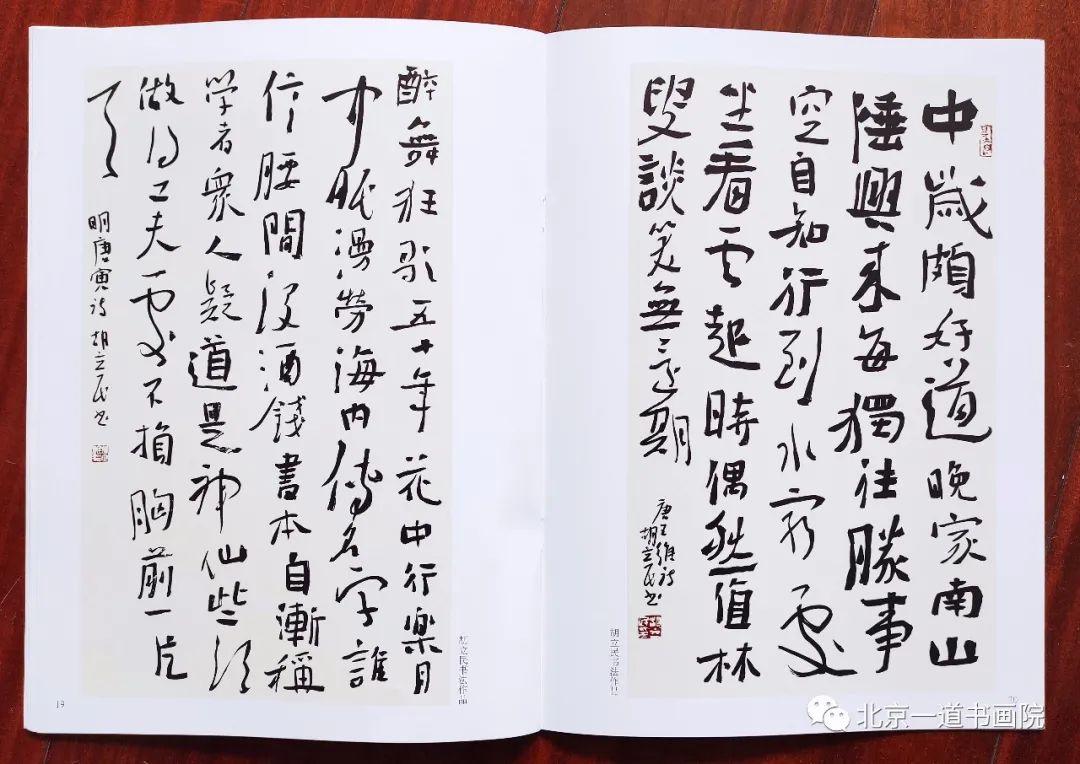 醉舞狂歌五十年花中行樂月
中眠漫勞海内傳名字誰
信腰間没酒錢書本自漸稱
学者衆人疑道是神仙些須
做得工夫處不損胸前一片
天
明唐寅诗胡立民书
胡立民书法作品
19
中歲頗好道晚家南山
陲興来每獨往勝事
空自知行到水穷處
坐看云起時偶然值林
叟談笑無還期
唐王維诗
胡立民书
胡立民书法作品
20
北京一道书画院